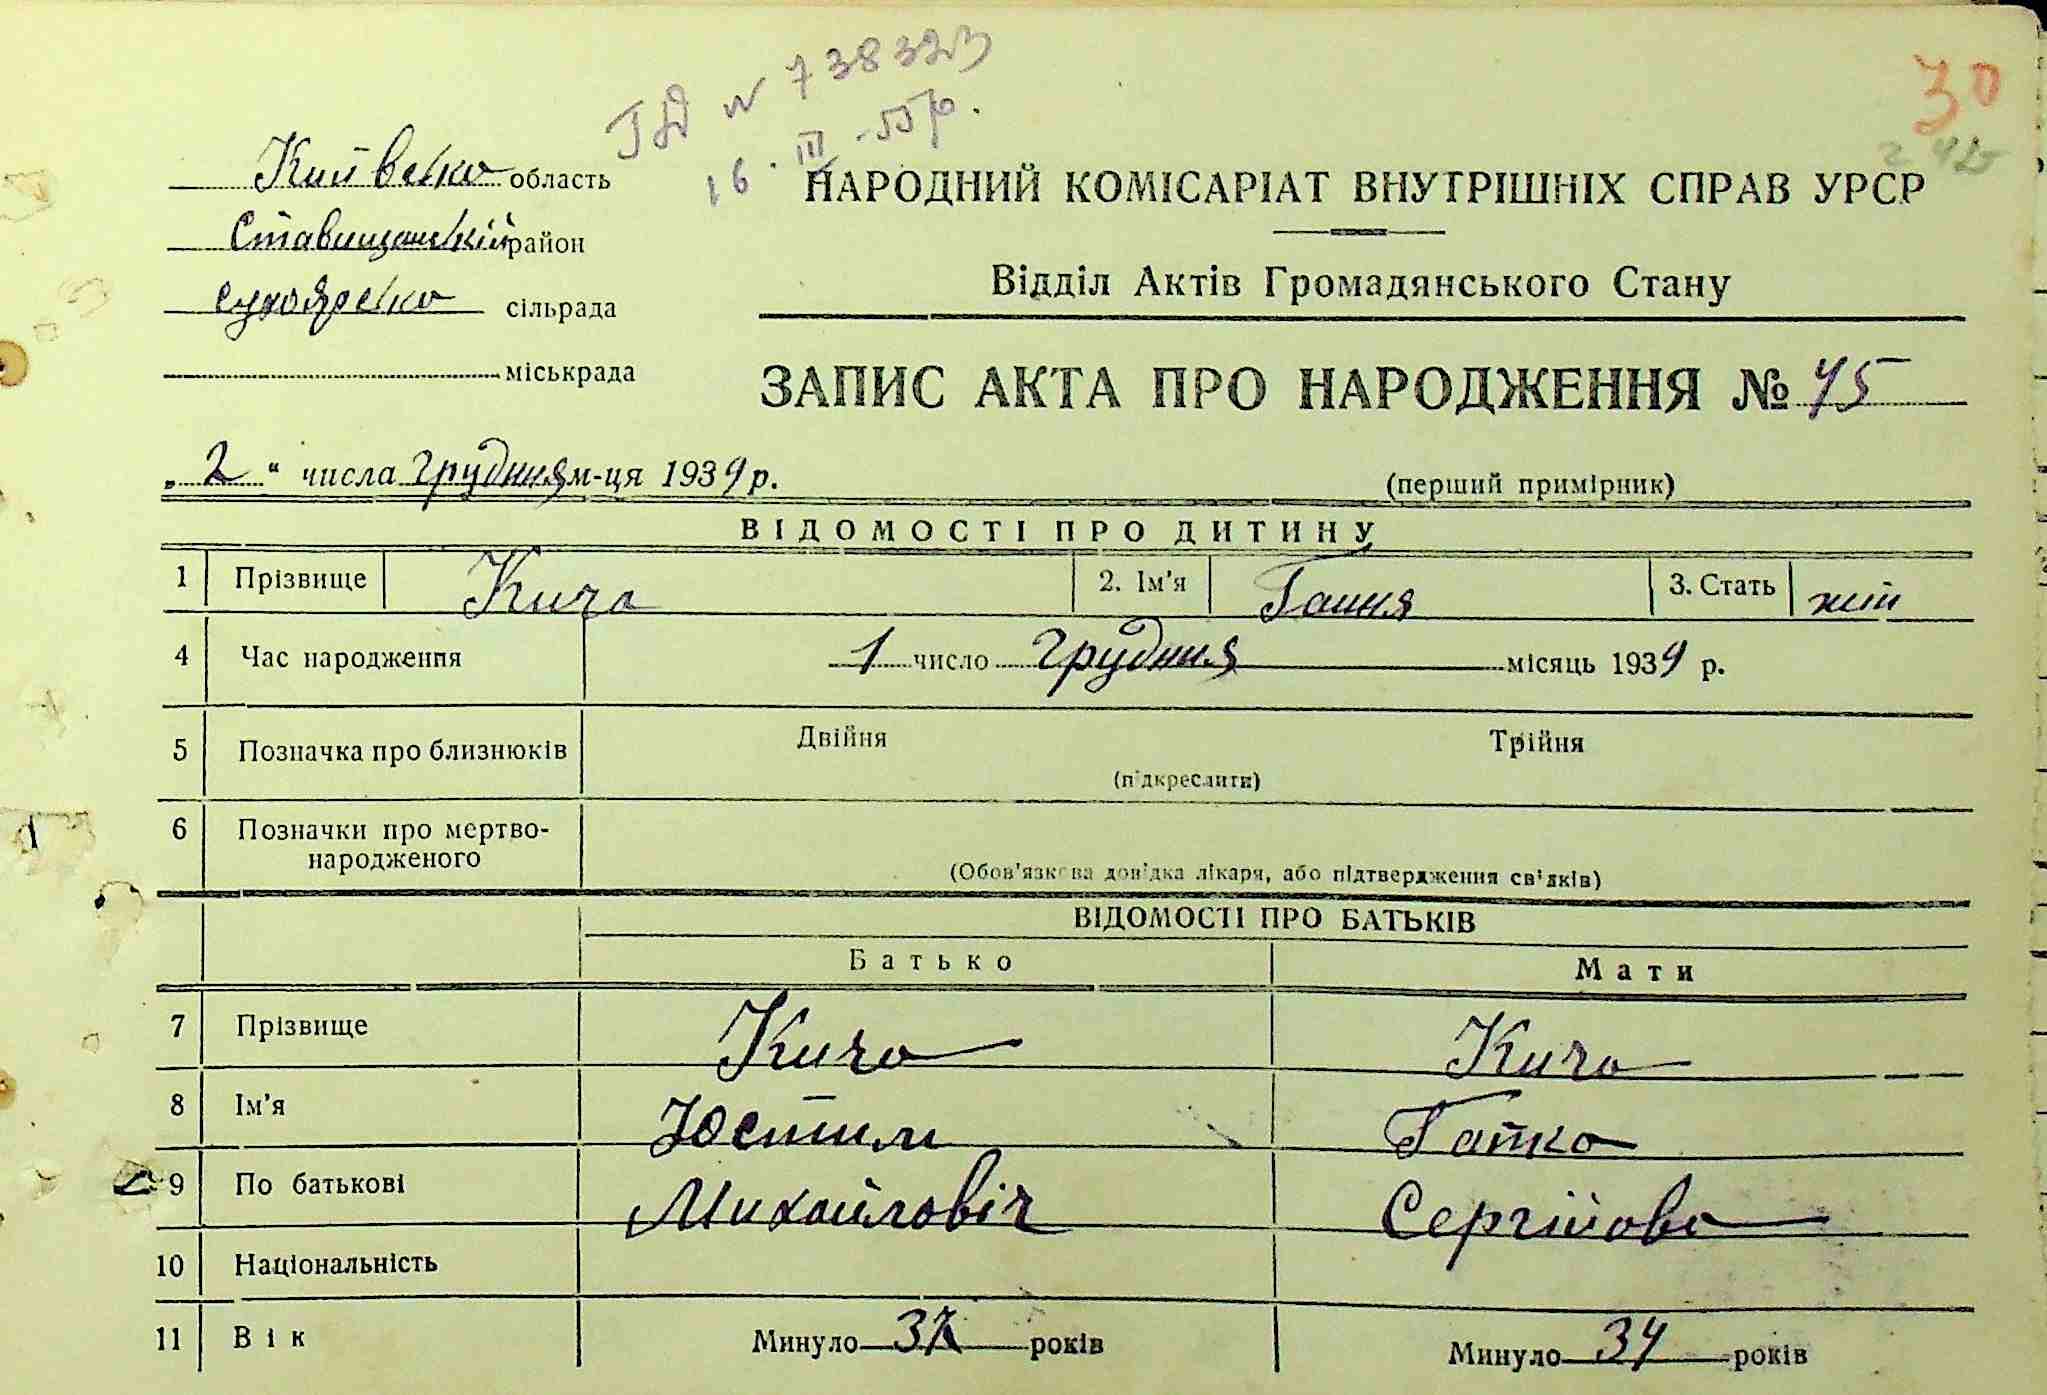 ГД N 738323
16. III - 55 р.
30
Київська область
Ставищанський район
Сухоярська сільрада
міськрада
НАРОДНИЙ КОМІСАРІАТ ВНУТРІШНІХ СПРАВ УРСР
Відділ Актів Громадянського Стану
ЗАПИС АКТА ПРО НАРОДЖЕННЯ № 45
„2“ числа грудня м-ця 1939 р.
(перший примірник)
ВІДОМОСТІ ПРО ДИТИНУ
1 Прізвище Кича 2. Ім'я Гання 3. Стать
4 Час народження 1 число грудня місяць 1939 р.
5 Позначка про близнюків Двійня Трійня
(підкреслити)
6 Позначки про мертво-
народженого
(Обов'язкова довідка лікаря, або підтвердження свідків)
ВІДОМОСТІ ПРО БАТЬКІВ
Батько Мати
7 Прізвище Кича Кича
8 Ім'я Юстим Гапка
9 По батькові Михайловіч Сергійова
10 Національність
11 Вік Минуло 37 років Минуло 34 років